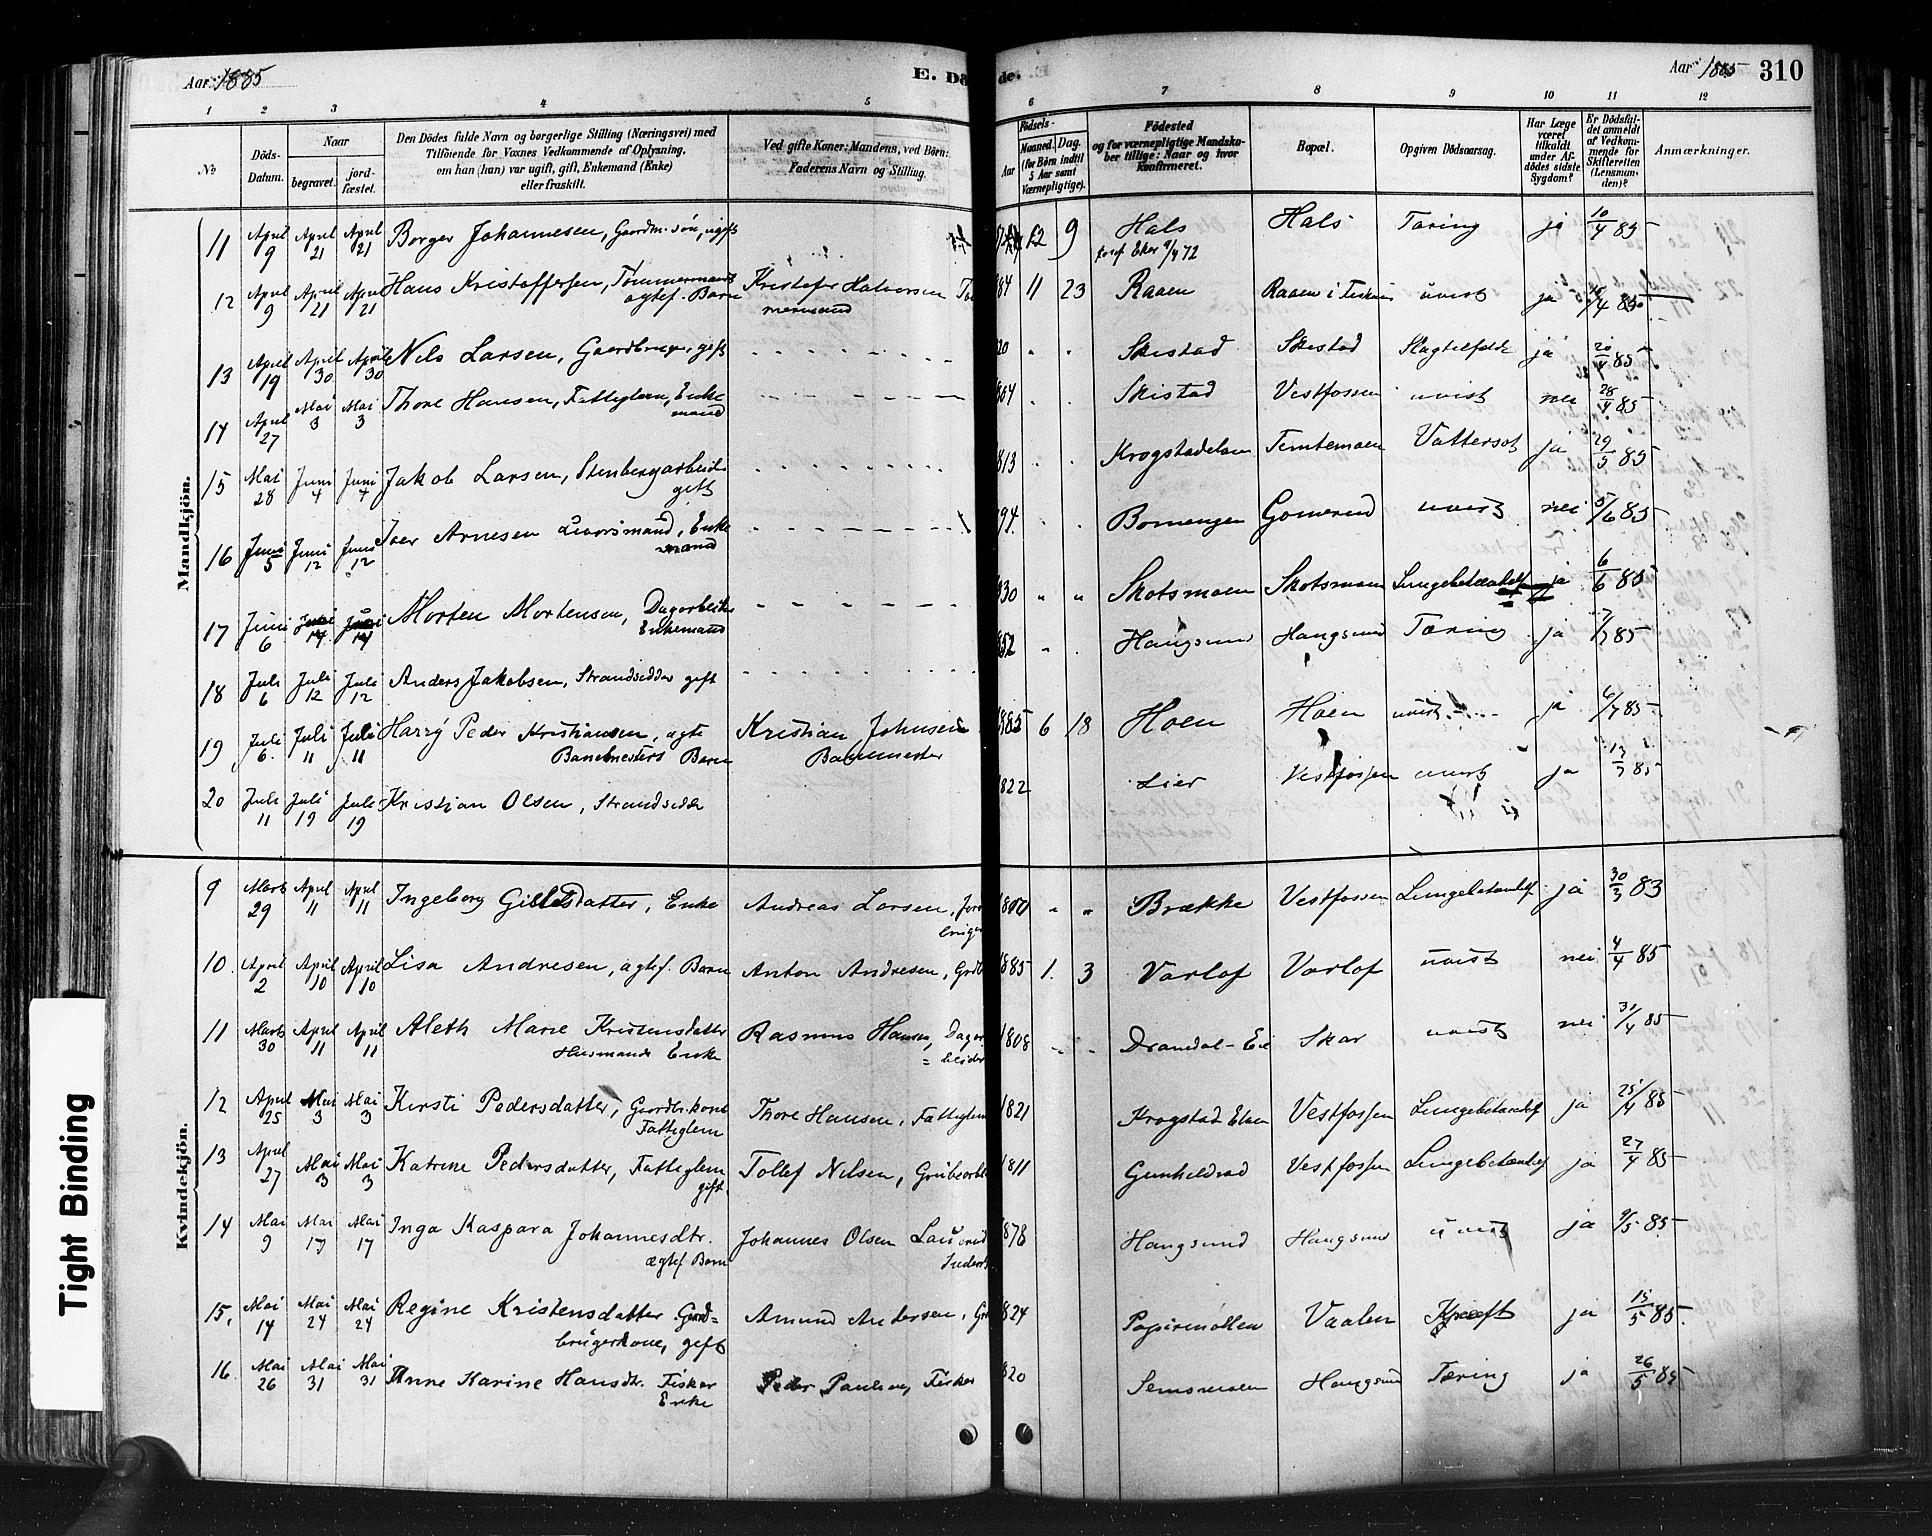 Aar 1885
E. Dö
de.
Aar 1885
310
1 2 3 4 5 6 7 8 9 10 11 12
No
Döds-Datum.
Naar
begravet.
jordfæstet.
Den Dödes fulde Navn og borgerlige Stilling (Næringsvei) med Tilföiende for Voxnes Vedkommende af Oplysning, om han (hun) var ugift, gift, Enkemand (Enke) eller fraskilt.
Ved gifte Koner: Mandens, ved Börn: Faderens Navn og Stilling.
Födsels-
Aar
Maaned. Dag.
(for Börn indtil 5 Aar samt Værnepligtige).
Födested og for værnepligtige Mandskaber tillige: Naar og hvor Konfirmeret.
Bopæl.
Opgiven Dödsaarsag.
Har Læge været tilkaldt under Afdödes sidste Sygdom?
Er Dödsfaldet anmeldt af Vedkommende for Skifteretten (Lensmanden)?
Anmærkninger.
Mandkjön.
11 April 9 April 21 April 21 Borger Johannesen, Gaardm. søn, ugift 12 9 Hals Hals Tæring ja 10/4 85
Conf Eker 72
12 April 9 April 21 April 21 Hans Kristoffersen, Tømmermands ægtef. Barn Kristofer Halvorsen Tømmermand 84 11 23 Raaen Raaen i Fiskum uvist ja /4 85
13 April 19 April 30 April 30 Nils Larsen, Gaardbruger, gift 20 Skistad Skistad Slagtilfælde ja 20/4 85
14 April 27 Mai 3 Mai 3 Thore Hansen, Fattiglem, Enkemand 804 Skistad Vestfossen uvist nei 28/4 85
15 Mai 28 Juni 4 Juni 4 Jakob Larsen, Stenbergarbeid. gift 813 Krogstadelven Temtemoen Vattersot ja 29/5 85
16 Juni 5 Juni 12 Juni 12 Iver Arnesen Livorsmand, Enkemand 94 Bomengen Gomerud uvist nei 5/6 85
17 Juni 6 Juni 14 Juni 14 Morten Mortensen, Dagarbeider Enkemand 30 Skotsmoen Skotsmoen Lungebetændelse ja 6/6 85
18 Juli 6 Juli 12 Juli 12 Anders Jakobsen, Strandsidder gift 852 Hougsund Hougsund Tæring ja 7/7 85
19 Juli 6 Juli 11 Juli 11 Harry Peder Kristiansen, ægte Banemesters Barn Kristian Johnsen Banemester 1885 6 18 Hoen Hoen uvist ja 6/7 85
20 Juli 11 Juli 19 Juli 19 Kristian Olsen, Strandsidder 1822 Lier Vestfossen uvist ja 13/7 85
Kvindekjön.
9 Marts 29 April 11 April 11 Ingeborg Gulliksdatter, Enke Andreas Larsen, Jordbruger 1800 Brække Vestfossen Lungebetændelse ja 30/3 83
10. April 2 April 10 April 10 Lisa Andresen, ægtef. Barn Anton Andresen, 1885 1. 3 Varlof Varlof uvist nei 4/4 85
11 Marts 30 April 11 April 11 Aleth Marie Kristensdatter Husmands Enke Rasmus Hansen, Dagarbeider 1808 Dramdal-Eie Skar uvist nei 31/4 85
12 April 25 Mai 3 Mai 3 Kirsti Pedersdatter, Gaardbr. kone Fattiglem Thore Hansen, Fattiglem 1821 Krogstad Elven Vestfossen Lungebetændelse ja 25/4 85
13 April 27 Mai 3 Mai 3 Katrine Pedersdatter, Fattiglem gift Tollef Nilsen, Grubearb. 1811 Gunhildrud Vestfossen Lungebetændelse ja 27/4 85
14 Mai 9 Mai 17 Mai 17 Inga Kaspara Johannesdtr. ægtef Barn Johannes Olsen 1878 Hougsund Hougsund uvist ja 9/5 85
15, Mai 14 Mai 24 Mai 24 Regine Kristensdatter Gaardbrugerkone, gift Amund Andersen, 824 Papirmøllen Vaalen Kræft ja 15/5 85
16 Mai 26 Mai 31 Mai 31 Anne Karine Hansdtr. Fisker Enke Peder Paulsen, Fisker 820 Semsmoen Hougsund Tæring ja 26/5 85
Tight Binding